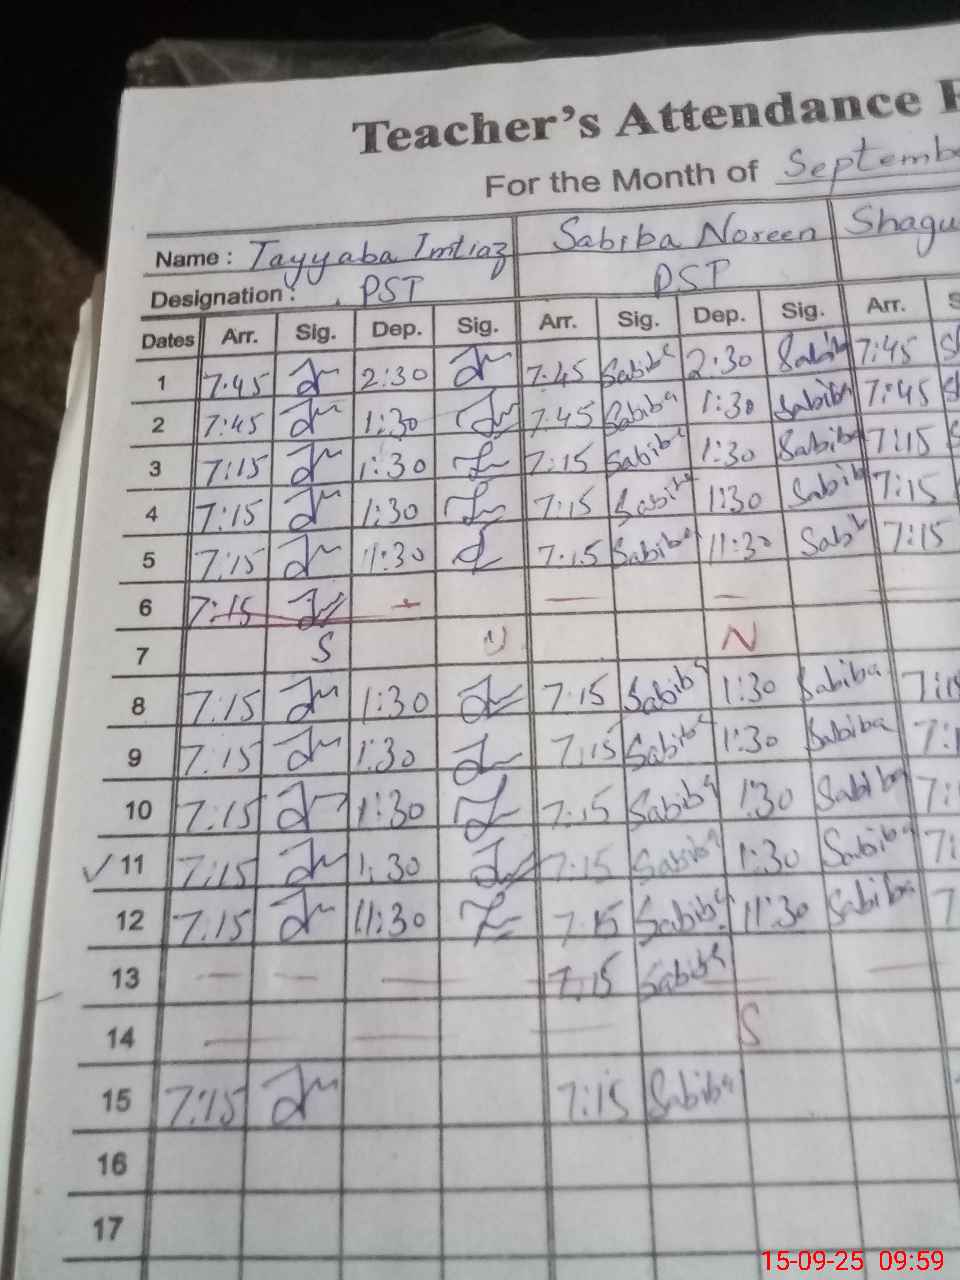 Teacher's Attendance
For the Month of Septembe
Name : Tayyaba Imtiaz Sabiba Noreen Shagu
Designation : PST PST
Dates Arr. Sig. Dep. Sig. Arr. Sig. Dep. Sig. Arr. S
1 7:45 2:30 7:45 Sabiba 2:30 Sabib 7:45 Sh
2 7:45 1:30 7:45 Sabiba 1:30 Sabiba 7:45
3 7:15 1:30 7:15 Sabiba 1:30 Sabiba 7:15
4 7:15 1:30 7:15 Sabiba 1:30 Sabiba 7:15
5 7:15 11:30 7:15 Sabiba 11:30 Sabib 7:15
6 7:15 — —
7 S U N
8 7:15 1:30 7:15 Sabiba 1:30 Sabiba 7:15
9 7:15 1:30 7:15 Sabiba 1:30 Sabiba 7:1
10 7:15 1:30 7:15 Sabiba 1:30 Sabiba 7:
✓ 11 7:15 1:30 7:15 Sabiba 1:30 Sabiba 7:
12 7:15 11:30 7:15 Sabiba 11:30 Sabiba 7
13 — — — 7:15 Sabiba — —
14 — — — S
15 7:15 7:15 Sabiba
16
17
15-09-25 09:59